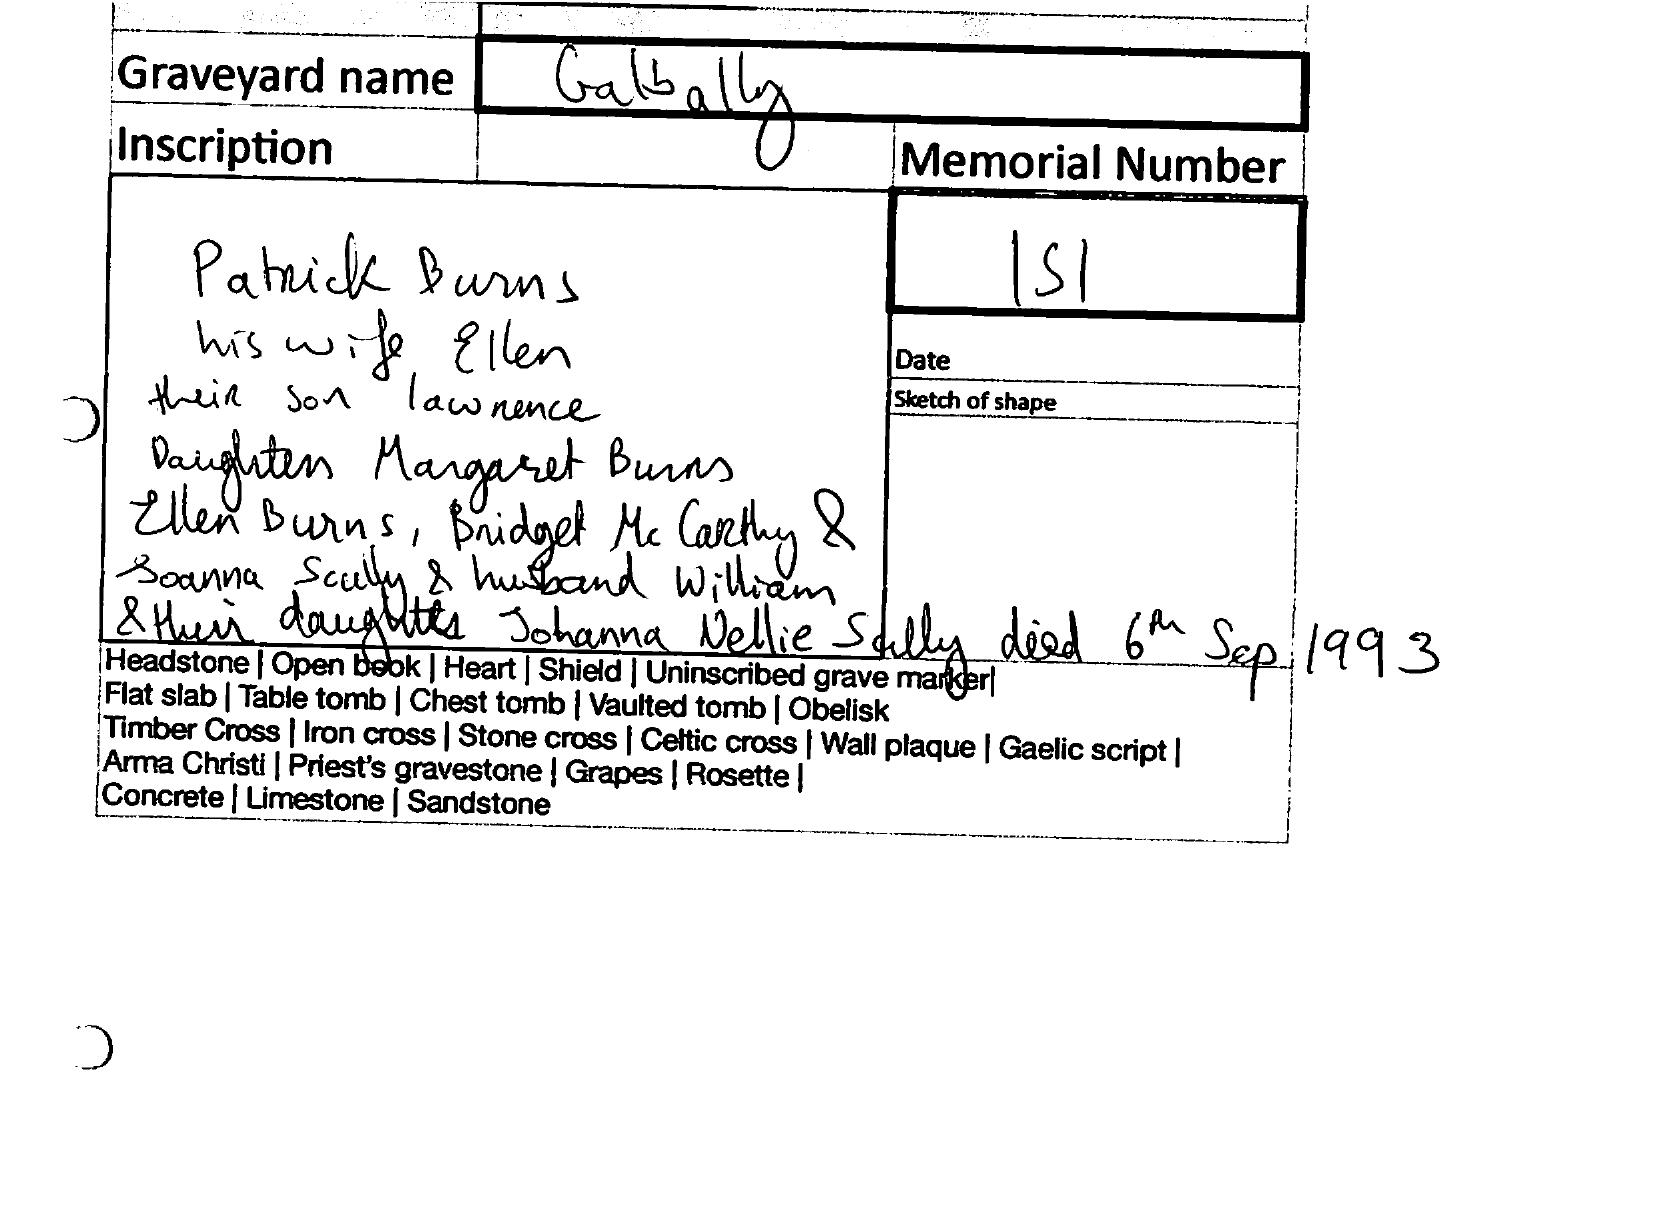 Graveyard name Galbally
Inscription Memorial Number
151
Patrick Burns
his wife Ellen
Date
their son lawrence
Sketch of shape
Daughters Margaret Burns
Ellen Burns, Bridget Mc Carthy &
Joanna Scully & husband William
& their daughters Johanna Nellie Scully died 6th Sep 1993
Headstone | Open book | Heart | Shield | Uninscribed grave marker|
Flat slab | Table tomb | Chest tomb | Vaulted tomb | Obelisk
Timber Cross | Iron cross | Stone cross | Celtic cross | Wall plaque | Gaelic script |
Arma Christi | Priest's gravestone | Grapes | Rosette |
Concrete | Limestone | Sandstone